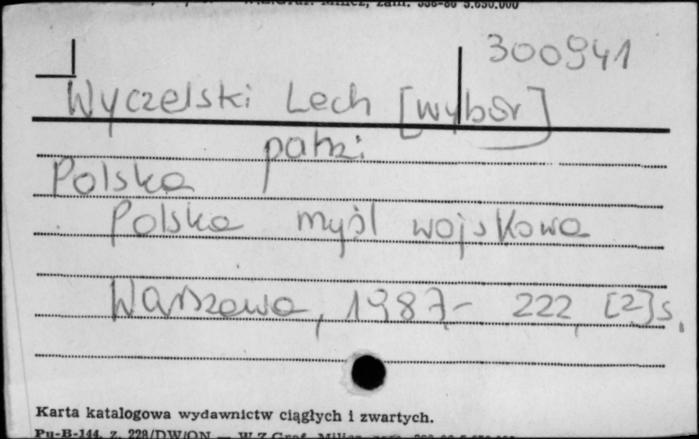 300941
Wyczelski Lech [wybór]
patrz:
Polska
Polska myśl wojskowa
Warszawa, 1987 - 222, [2] s.
Karta katalogowa wydawnictw ciągłych i zwartych.
Pu-B-144, z. 228/DW/ON — W.Z.Graf.